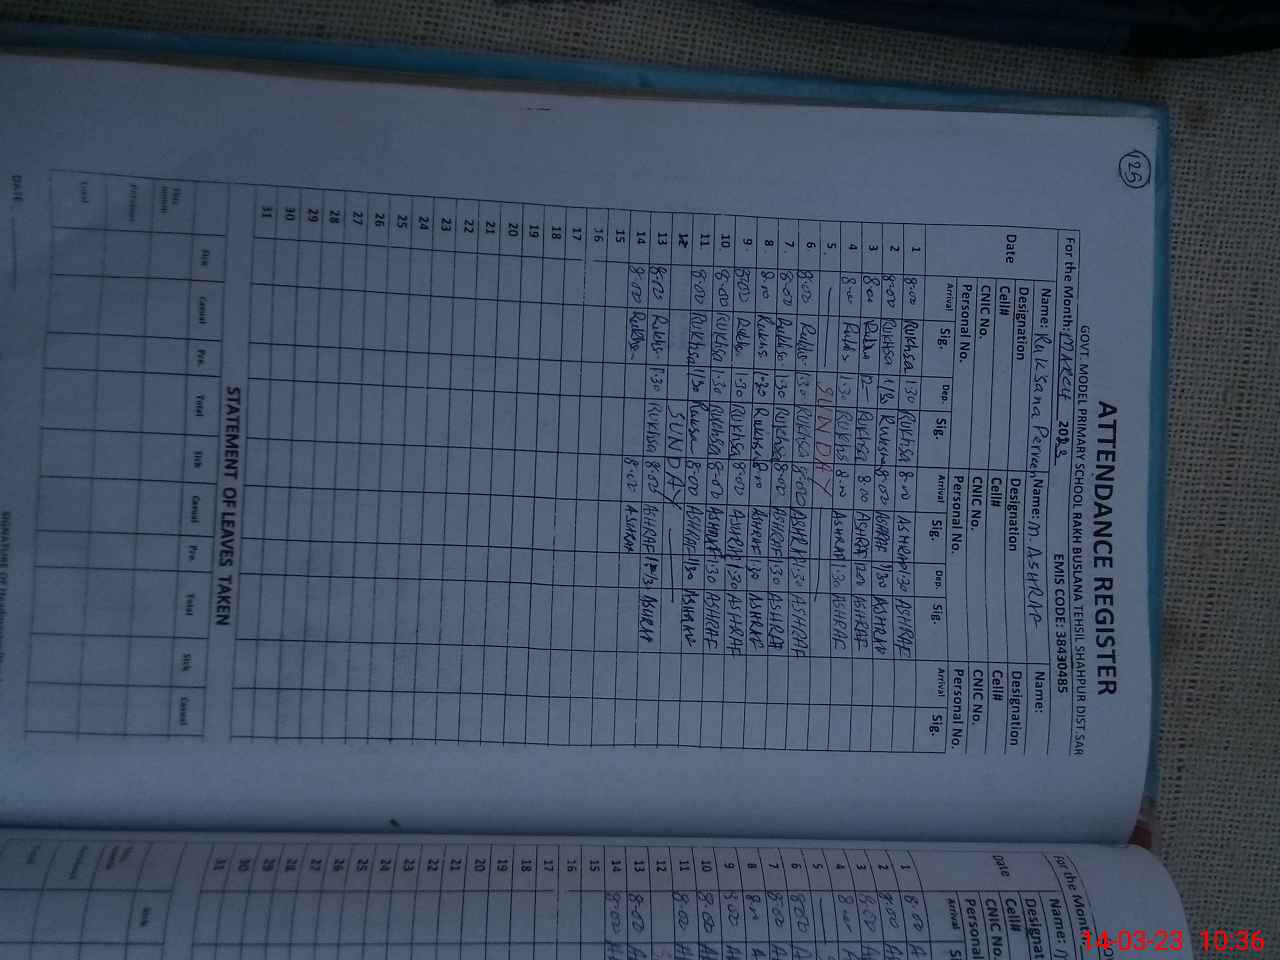 125
ATTENDANCE REGISTER
GOVT. MODEL PRIMARY SCHOOL RAKH BUSLANA TEHSIL SHAHPUR DIST.SAR
For the Month: MARCH 2023 EMIS CODE: 38430485
Name: Ruksana Perveen Name: M. ASHRAF Name:
Designation Designation Designation
Cell# Cell# Cell#
CNIC No. CNIC No. CNIC No.
Personal No. Personal No. Personal No.
Date Arrival Sig. Dep. Sig. Arrival Sig. Dep. Sig. Arrival Sig.
1 8:00 Rukhsa 1:30 Rukhsa 8:00 ASHRAF 1:30 ASHRAF
2 8:00 Rukhsa 1/30 Rukhsa 8:00 ASHRAF 1/30 ASHRAF
3 8:00 Rukhsa 12 Rukhsa 8:00 ASHRAF 12:00 ASHRAF
4 8:00 1:30 Rukhs 8:00 ASHRAF 1:30 ASHRAF
5. SUNDAY
6 8:00 1:30 Rukhsa 8:00 ASHRAF 1:30 ASHRAF
7. 8:00 1:30 Rukhsa 8:00 ASHRAF 1:30 ASHRAF
8. 8:00 Rukhs 1:30 Rukhsa 8:00 ASHRAF 1:30 ASHRAF
9. 8:00 1:30 Rukhsa 8:00 ASHRAF 1:30 ASHRAF
10 8:00 Rukhsa 1:30 Rukhsa 8:00 ASHRAF 1:30 ASHRAF
11. 8:00 Rukhsa 1/30 Ruksa 8:00 ASHRAF 1/30 ASHRAF
12 SUNDAY
13 8:00 1:30 Rukhsa 8:00 ASHRAF ASHRAF
14 8:00 8:00 ASHRAF
15
16
17
18
19
20
21
22
23
24
25
26
27
28
29
30
31
STATEMENT OF LEAVES TAKEN
Sick Casual Pre. Total Sick Casual Pre. Total Sick Casual
This month
Previous
Total
DATE
SIGNATURE OF
For the Month
Name:
Designat
Cell#
CNIC No.
Personal
Date Arrival
1 8:00
2 8:00
3 8:00
4 8:00
5
6 8:00
7 8:00
8 8:00
9 8:00
10 8:00
11 8:00
12
13 8:00
14 8:00
15
16
17
18
19
20
21
22
23
24
25
26
27
28
29
30
31
Sick
14-03-23 10:36